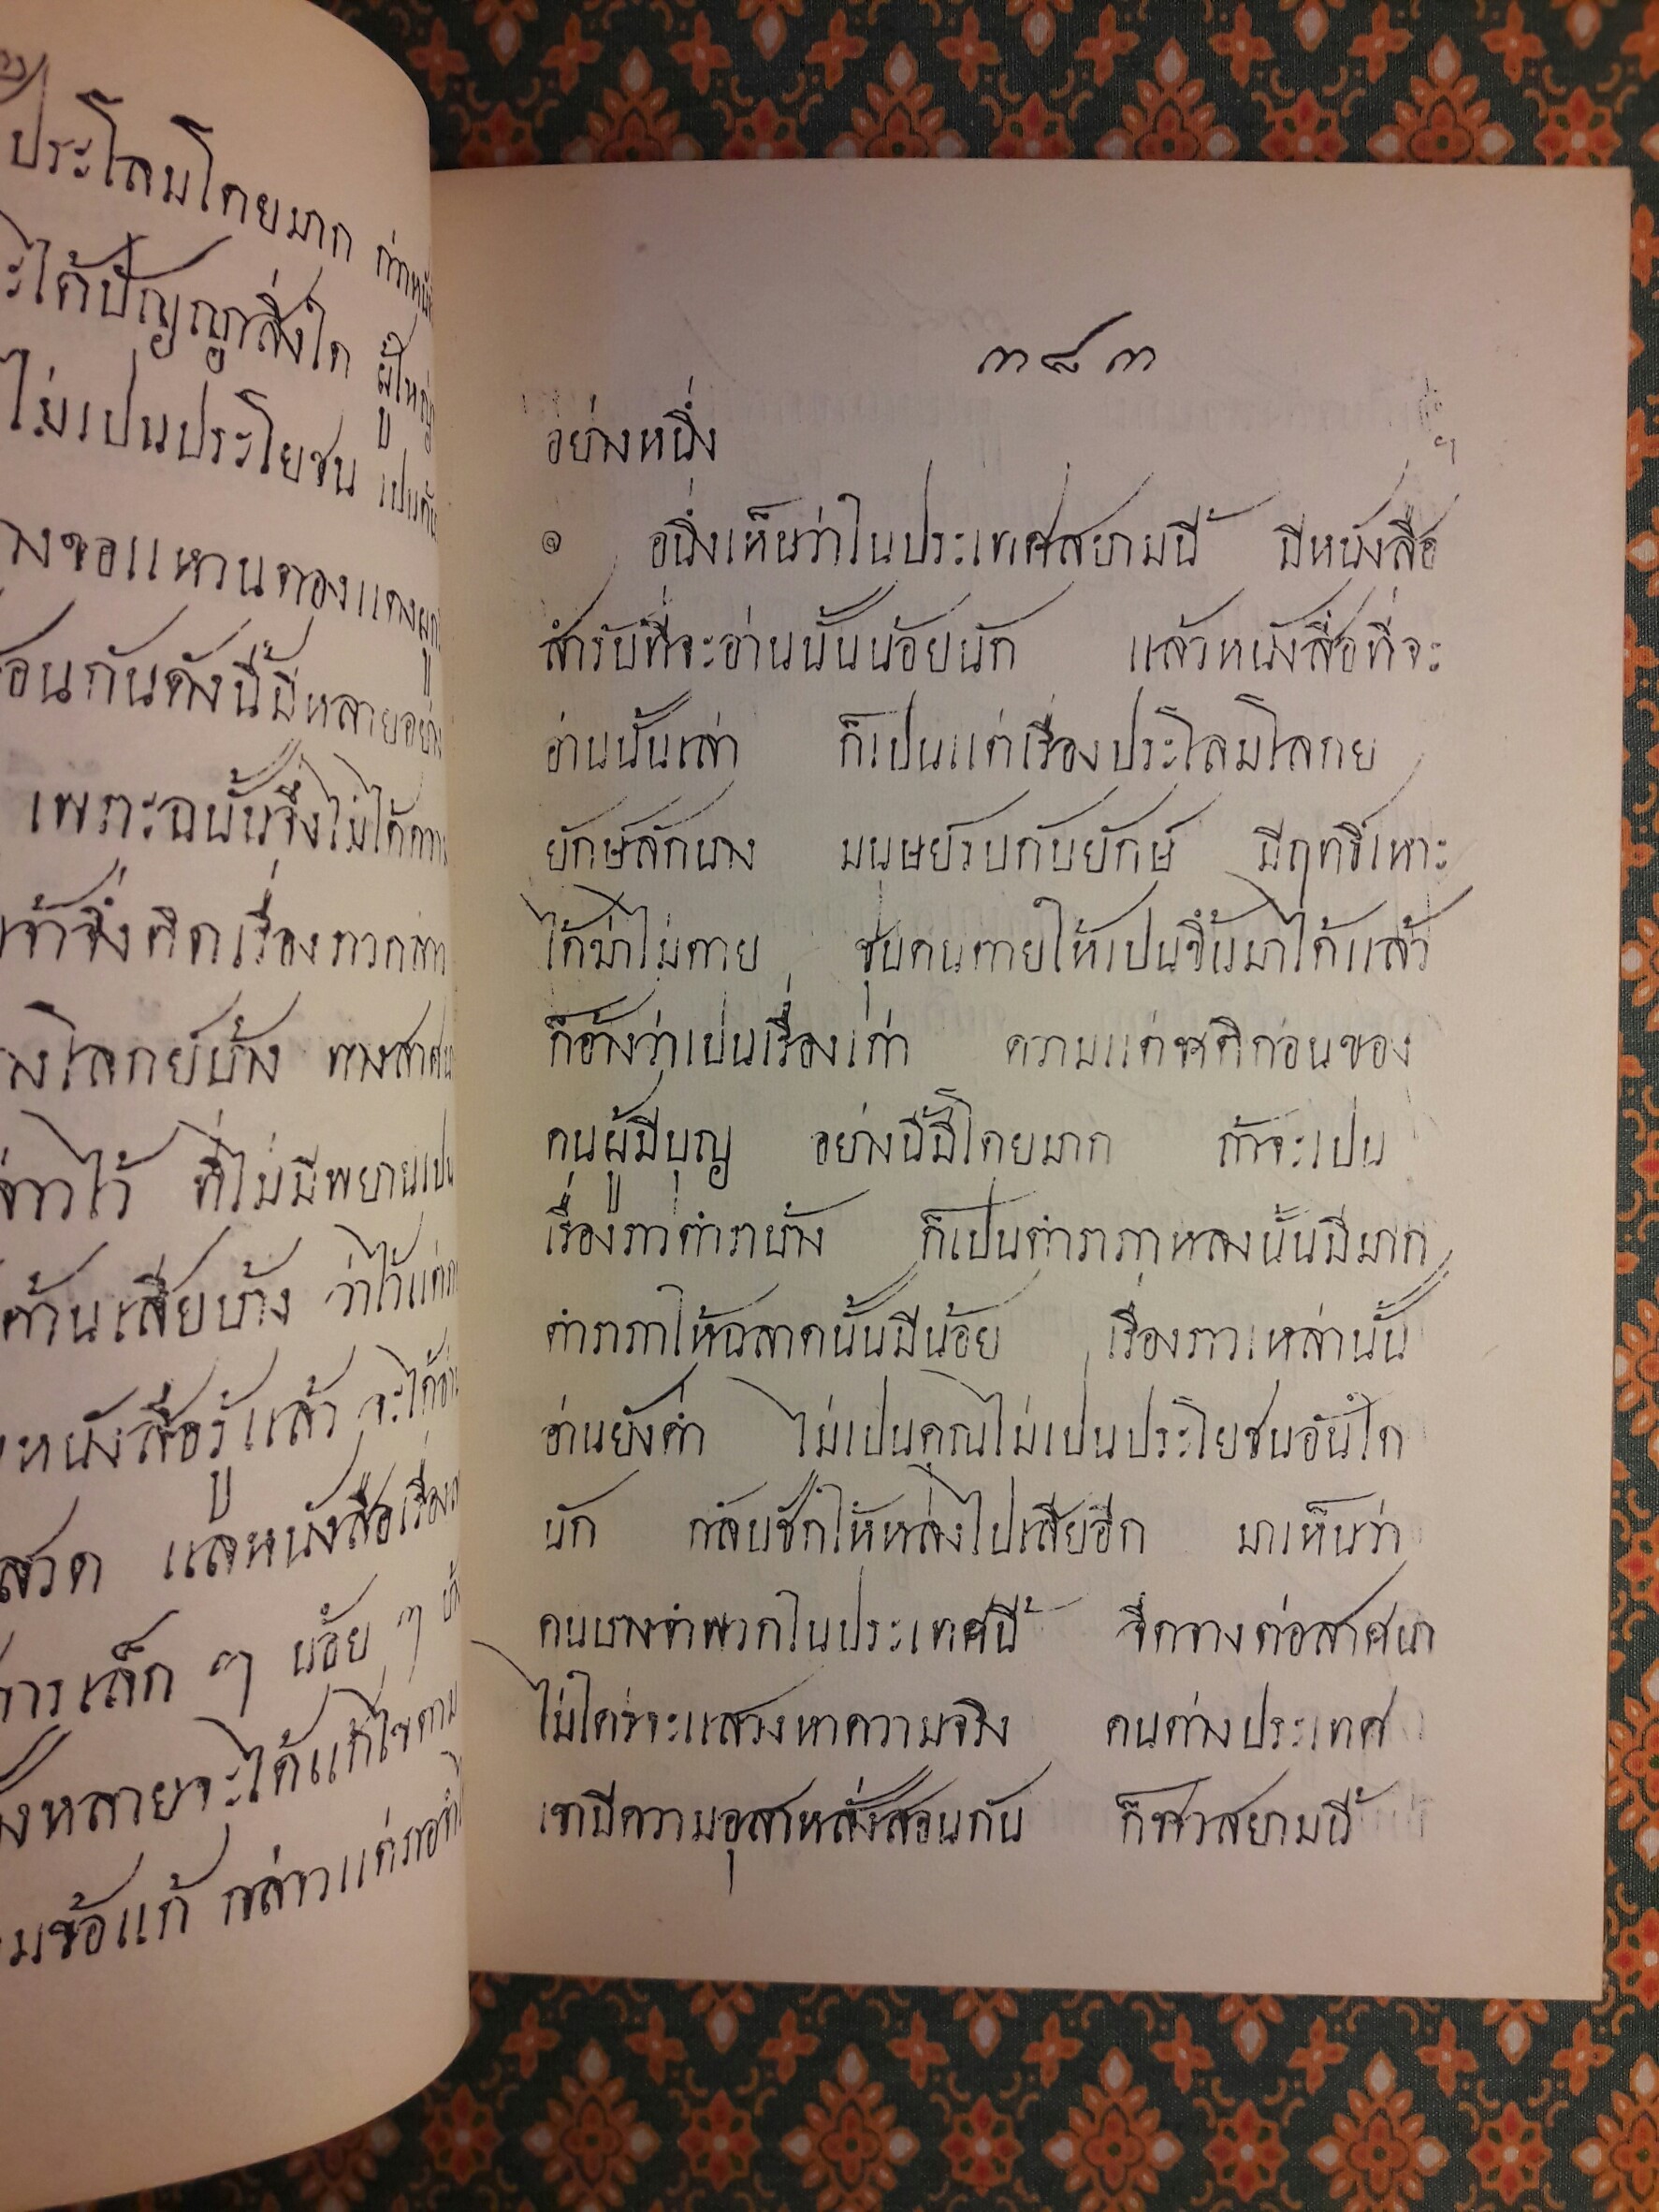 ประโลมโดยมาก
ได้ปัญญาสิ่งใด ผู้ใหญ่
ไม่เปนประโยชน
ขอแหวนทองแดงผูก
สอนกันดังนี้มีหลายอย่าง
เพราะฉนั้นจึ่งไม่ได้ความ
จึ่งคิดเรื่องราวกล่าว
โลกย์บ้าง ทางสาศนา
ไว้ ที่ไม่มีพยานเปน
ค้านเสียบ้าง ว่าไว้แต่
หนังสือรู้แล้ว จะได้อ่าน
สวด แลหนังสือเรื่อง
การเล็ก ๆ น้อย ๆ
ทั้งหลายจะได้แก้ไขตาม
ข้อแก้ กล่าวแต่
๓๘๓
อย่างหนึ่ง
๏ อนึ่งเห็นว่าในประเทศสยามนี้ มีหนังสือ
สำรับที่จะอ่านนั้นน้อยนัก แล้วหนังสือที่จะ
อ่านนั้นเล่า ก็เปนแต่เรื่องประโลมโลกย
ยักษ์ลักนาง มนุษย์รบกับยักษ์ มีฤทธิ์เหาะ
ได้ฆ่าไม่ตาย ชุบคนตายให้เปนขึ้นมาได้แล้ว
ก็อ้างว่าเปนเรื่องเก่า ความแต่ชาติก่อนของ
คนผู้มีบุญ อย่างนี้มีโดยมาก ถ้าจะเปน
เรื่องราวตำราบ้าง ก็เปนตำราภาหลงนั้นมีมาก
ตำราภาให้ฉลาดนั้นมีน้อย เรื่องราวเหล่านั้น
อ่านยังค่ำ ไม่เปนคุณไม่เปนประโยชนอันใด
นัก กลับชักให้หลงไปเสียอีก มาเห็นว่า
คนบางจำพวกในประเทศนี้ จืดจางต่อสาศนา
ไม่ใคร่จะแสวงหาความจริง คนต่างประเทศ
เขามีความอุสาหสั่งสอนกัน ก็ชาวสยามนี้